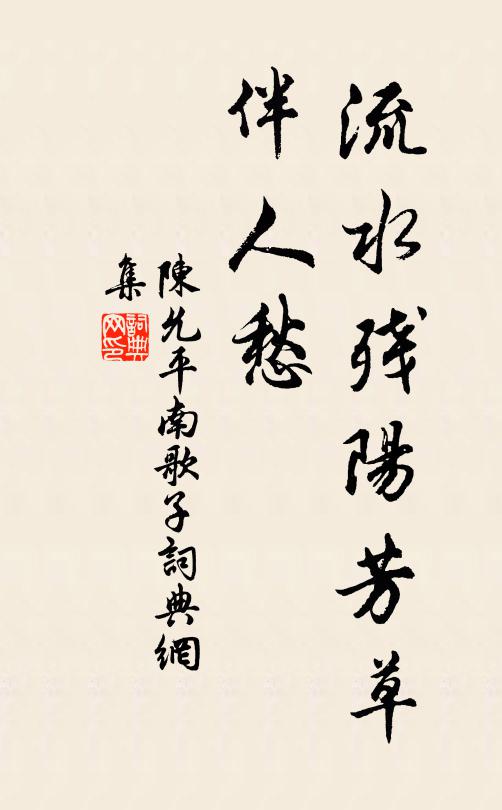 流水残陽芳草
伴人愁
陳允平南歌子詞典網
集
詞典网印